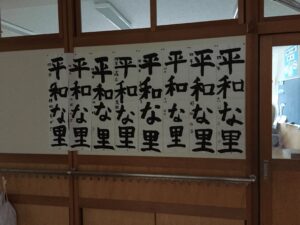 平和な里
平和な里
平和な里
平和な里
平和な里
平和な里
平和な里